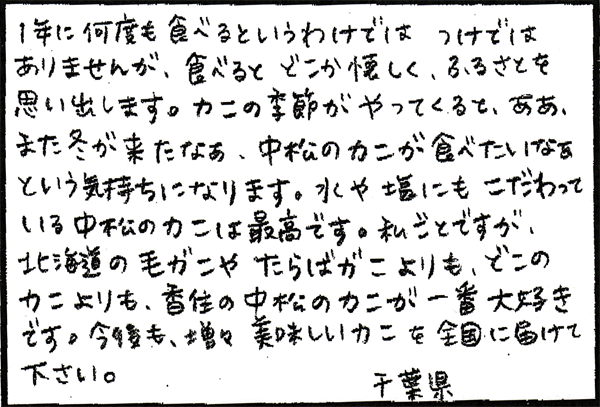 1年に何度も食べるというわけでは つけでは
ありませんが、食べると どこか懐しく、ふるさとを
思い出します。カニの季節が やってくると、ああ、
また冬が来たなぁ、中松のカニが食べたいなぁ
という気持ちになります。水や塩にもこだわって
いる中松のカニは最高です。私ごとですが、
北海道の毛ガニや たらばがこよりも、どこの
カニよりも、香住の中松のカニが一番大好き
です。今後も、増々 美味しいカニを全国に届けて
下さい。
千葉県